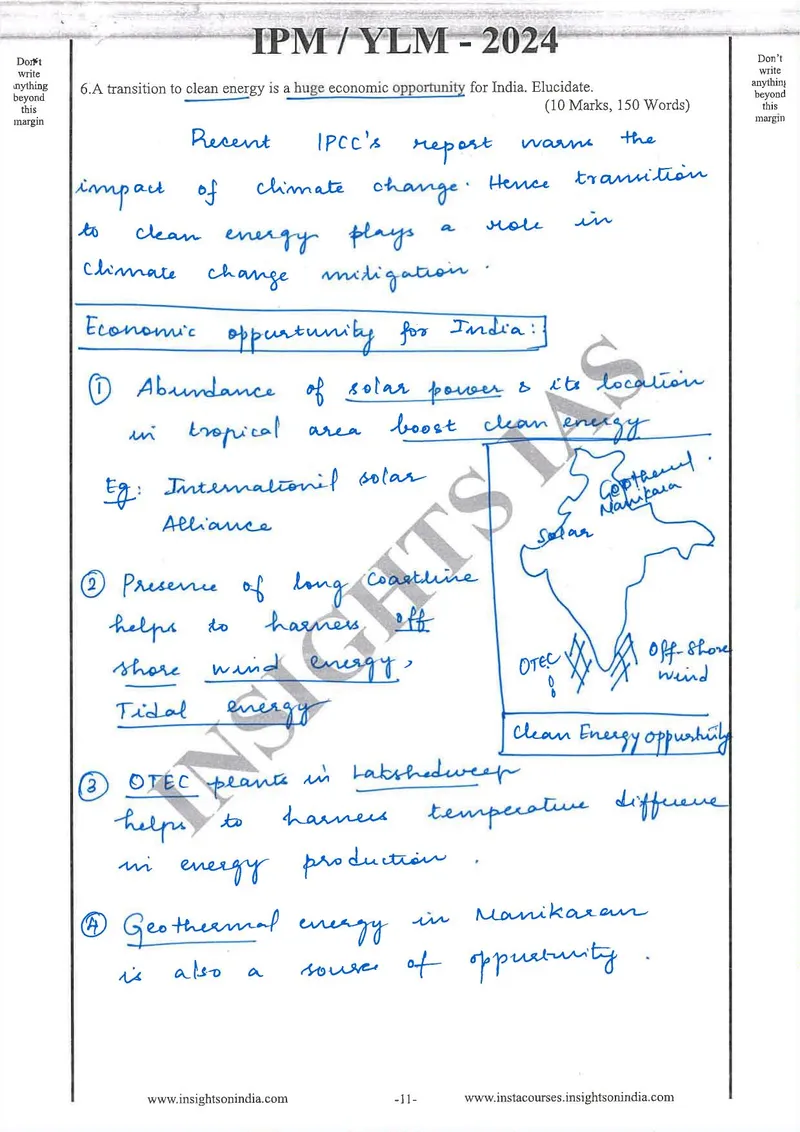 IPM / YLM - 2024
Don't
write
anything
beyond
this
margin
Don't
write
anything
beyond
this
margin
6.A transition to clean energy is a huge economic opportunity for India. Elucidate.
(10 Marks, 150 Words)
Recent IPCC's report warns the
impact of climate change. Hence transition
to clean energy plays a role in
climate change mitigation.
Economic oppurtunity for India:
① Abundance of solar power & its location
in tropical area boost clean energy
Eg: International solar
Alliance
② Presence of long coastline
helps to harness off
shore wind energy,
Tidal energy
Geothermal
Manikara
Solar
OTEC
Off-shore
wind
Clean Energy oppurtunity
③ OTEC plants in Lakshedweep
helps to harness temperature difference
in energy production.
④ Geothermal energy in Manikaran
is also a source of oppurtunity.
INSIGHTS IAS
www.insightsonindia.com
-11-
www.instacourses.insightsonindia.com